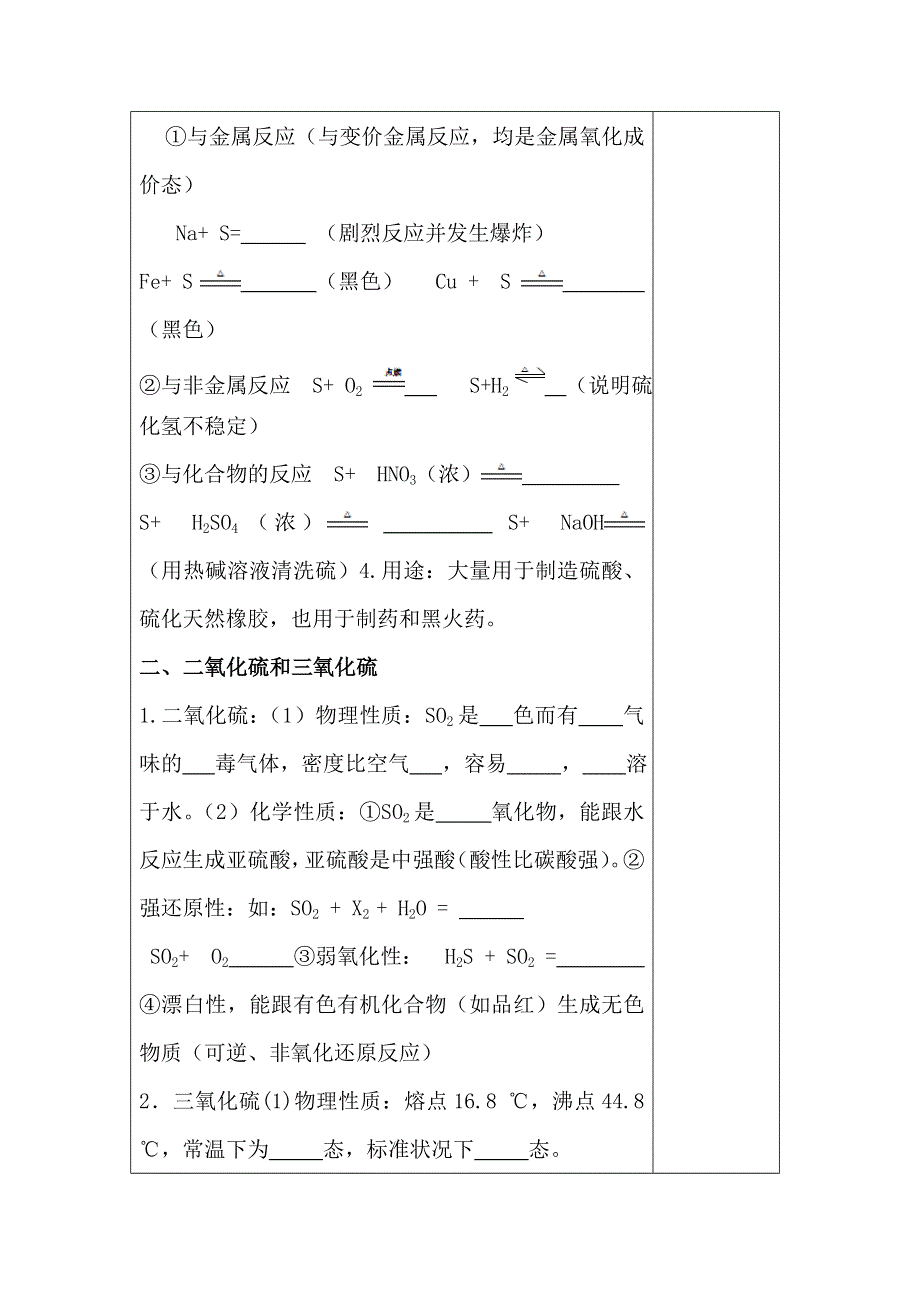 ①与金属反应（与变价金属反应，均是金属氧化成
价态）
Na+ S=______ （剧烈反应并发生爆炸）
Fe+ S △ _______（黑色） Cu + S △ ________
（黑色）
②与非金属反应 S+ O₂ 点燃 ___ S+H₂ △ __（说明硫
化氢不稳定）
③与化合物的反应 S+ HNO₃（浓） △ _________
S+ H₂SO₄ （浓） △ __________ S+ NaOH △
（用热碱溶液清洗硫）4.用途：大量用于制造硫酸、
硫化天然橡胶，也用于制药和黑火药。
二、二氧化硫和三氧化硫
1.二氧化硫：（1）物理性质：SO₂是___色而有____气
味的___毒气体，密度比空气___，容易_____，____溶
于水。（2）化学性质：①SO₂是_____氧化物，能跟水
反应生成亚硫酸，亚硫酸是中强酸（酸性比碳酸强）。②
强还原性：如：SO₂ + X₂ + H₂O = ______
SO₂+ O₂______③弱氧化性： H₂S + SO₂ =________
④漂白性，能跟有色有机化合物（如品红）生成无色
物质（可逆、非氧化还原反应）
2．三氧化硫(1)物理性质：熔点16.8 ℃，沸点44.8
℃，常温下为_____态，标准状况下_____态。